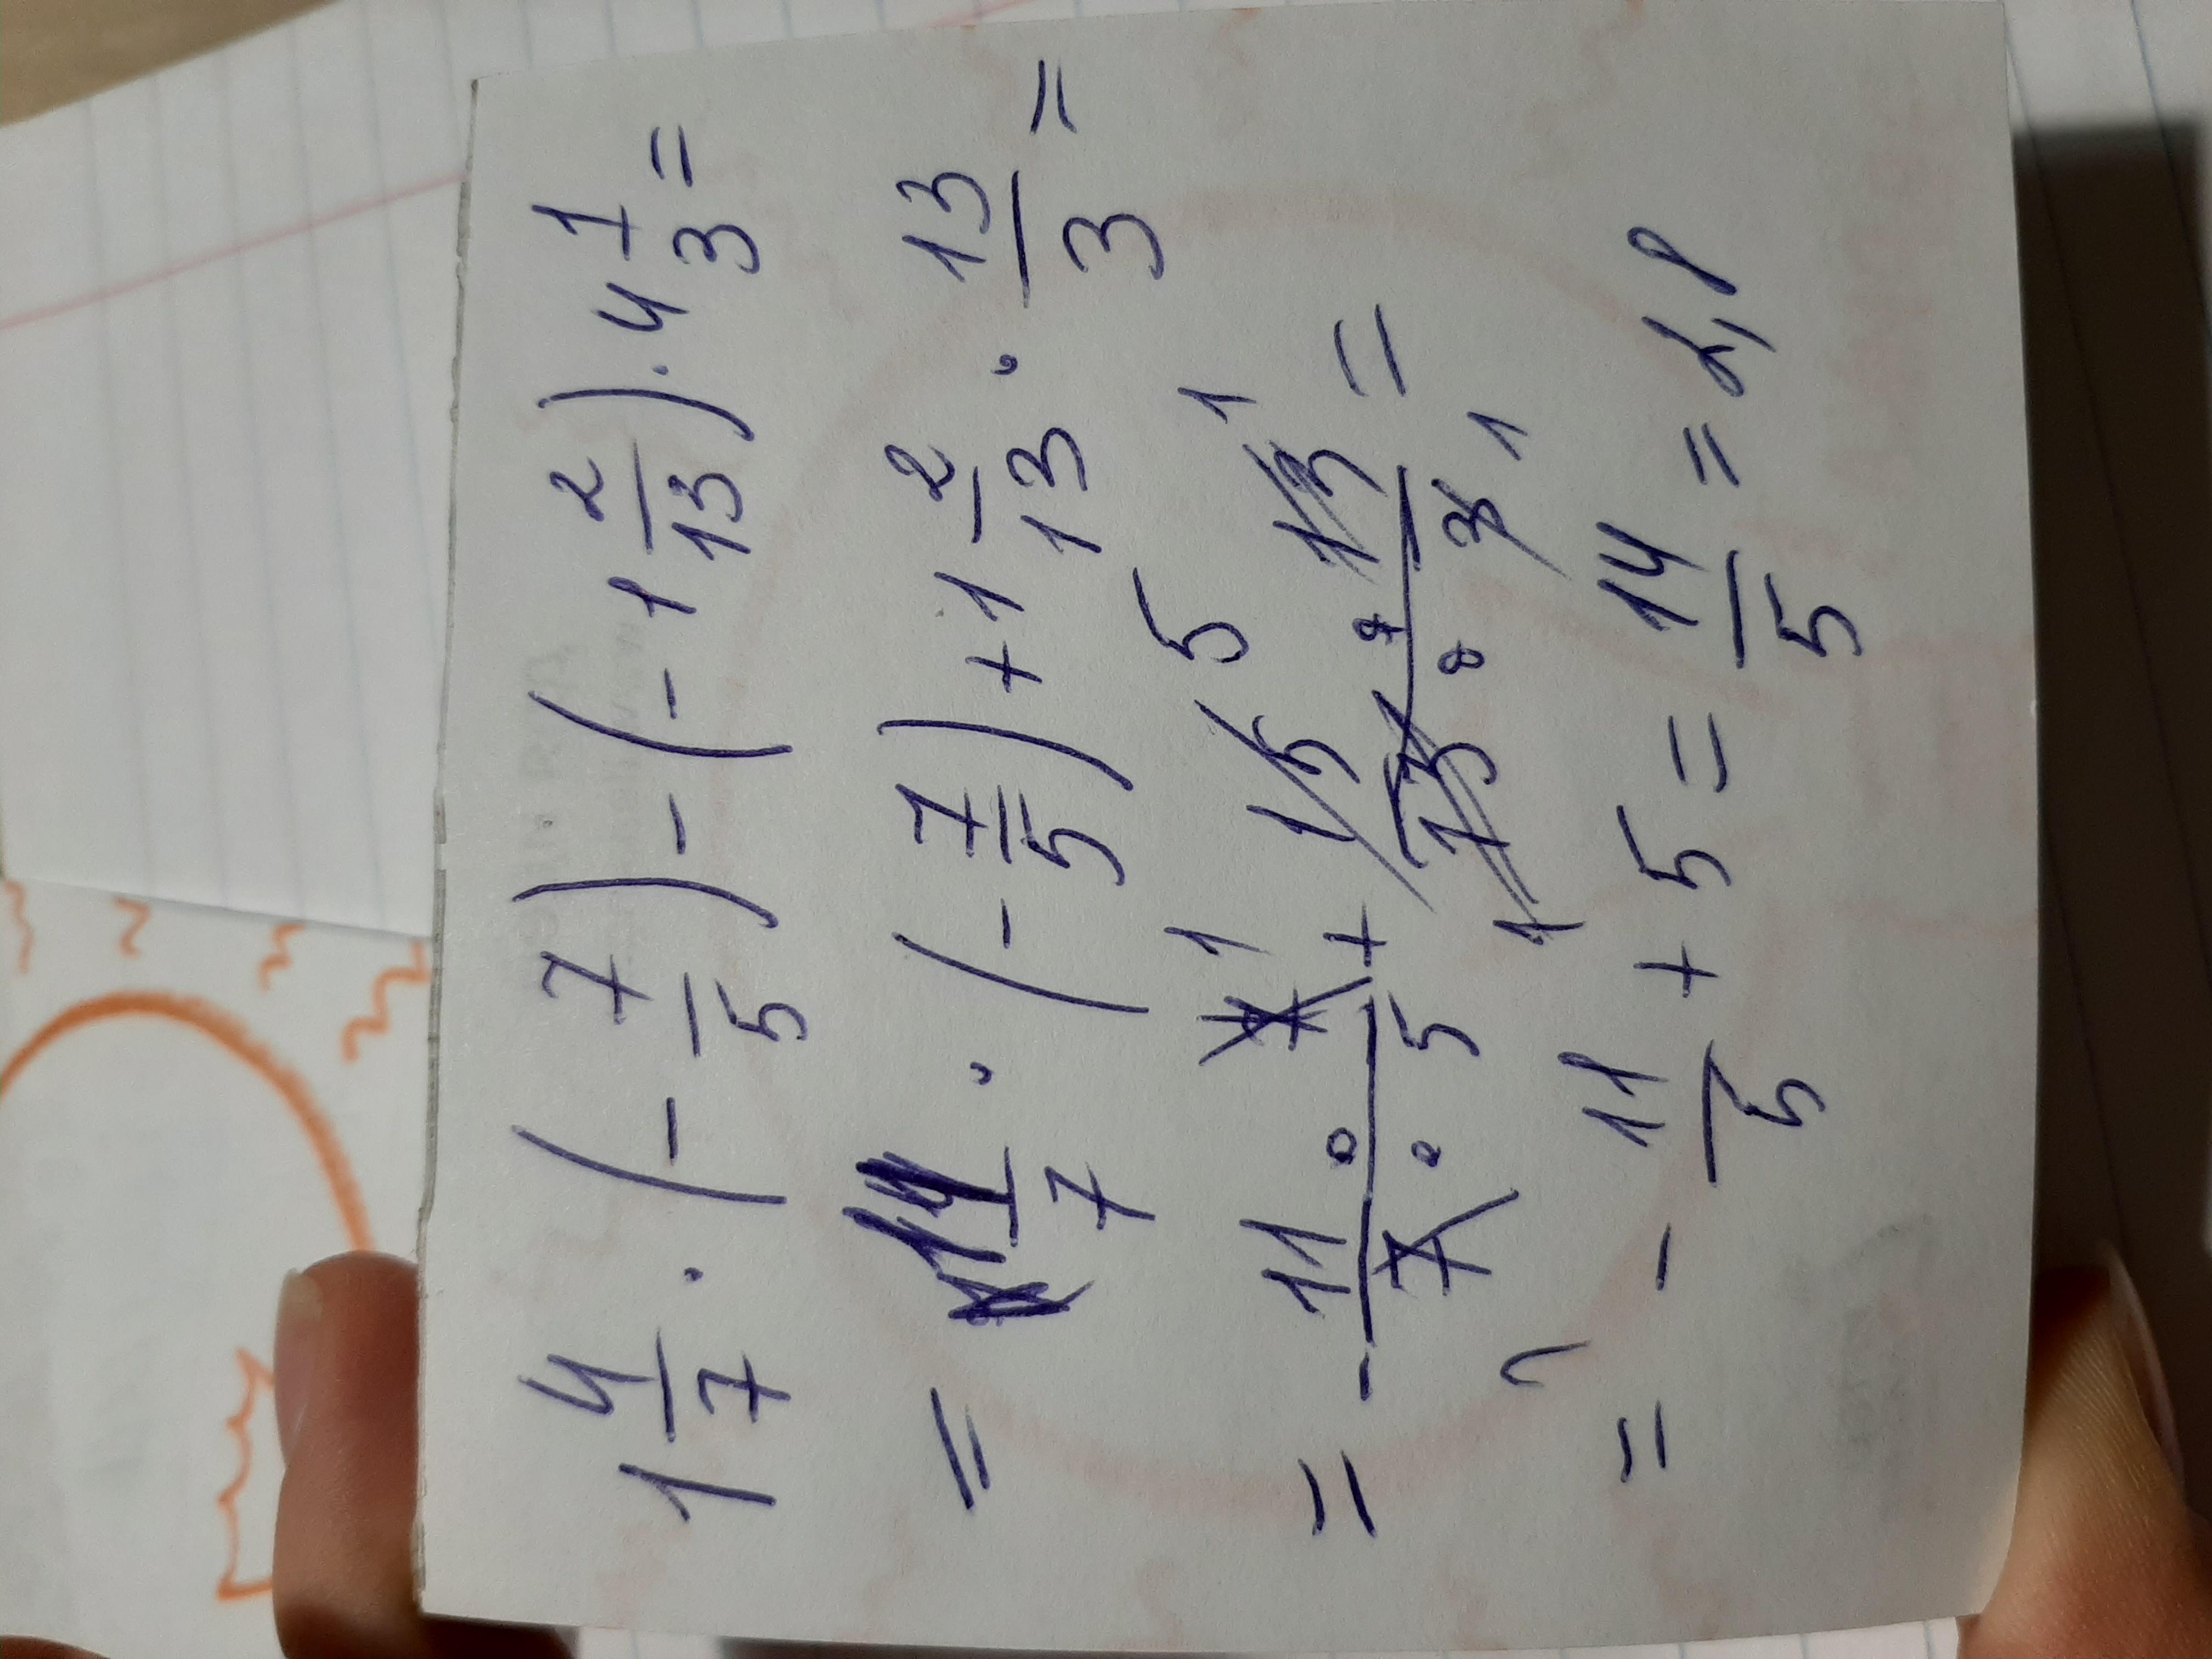 1 4/7 · (- 7/5) - (- 1 2/13) · 4 1/3 =
= 11/7 · (- 7/5) + 1 2/13 · 13/3 =
= - 11 · 7 1/7 · 5 + 15 5 · 13 1/13 1 · 3 1 =
= - 11/5 + 5 = 14/5 = 2,8